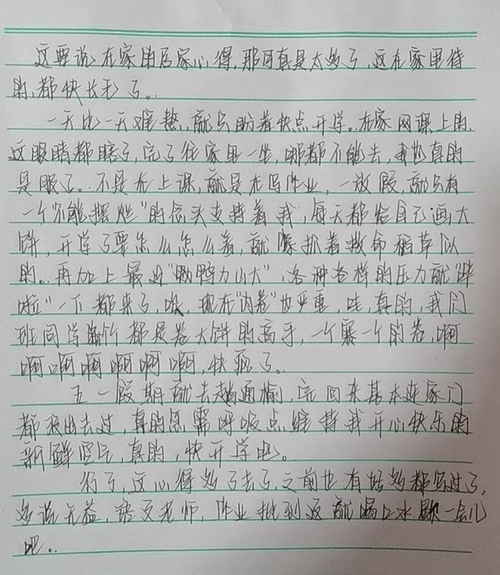 这要说在家的居家心得,那可真是太多了,这在家里待
的,都快长毛了。
一天比一天难熬,就只盼着快点开学。在家网课上的,
这眼睛都瞎了,完了往家里一坐,哪都不能去,我也真的
是服了。不是在上课,就是在写作业,一放假,就只有
一个"不能摆烂"的念头支持着我,每天都给自己画大
饼,开学了要怎么怎么着,就像抓着救命稻草似
的。再加上最近"鸭鸭力山大",各种各样的压力就"哗
啦"一下都来了,唉,现在"内卷"也严重,哇,真的,我们
班同学简竹都是卷大饼的高手,一个赛一个的卷,啊
啊啊啊啊啊啊,快疯了。
五一假期就去趟通榆,完回来基本连家门
都没出去过,真的急需呼吸点维持我开心快乐的
新鲜空气,真的,快开学吧。
行了,这心得多了去了,之前也有好多都写过了,
多说无益,语文老师,作业批到这就喝口水歇一会儿
吧。